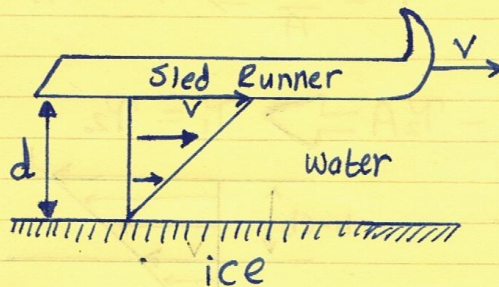 Sled Runner
V
V
d
Water
ice